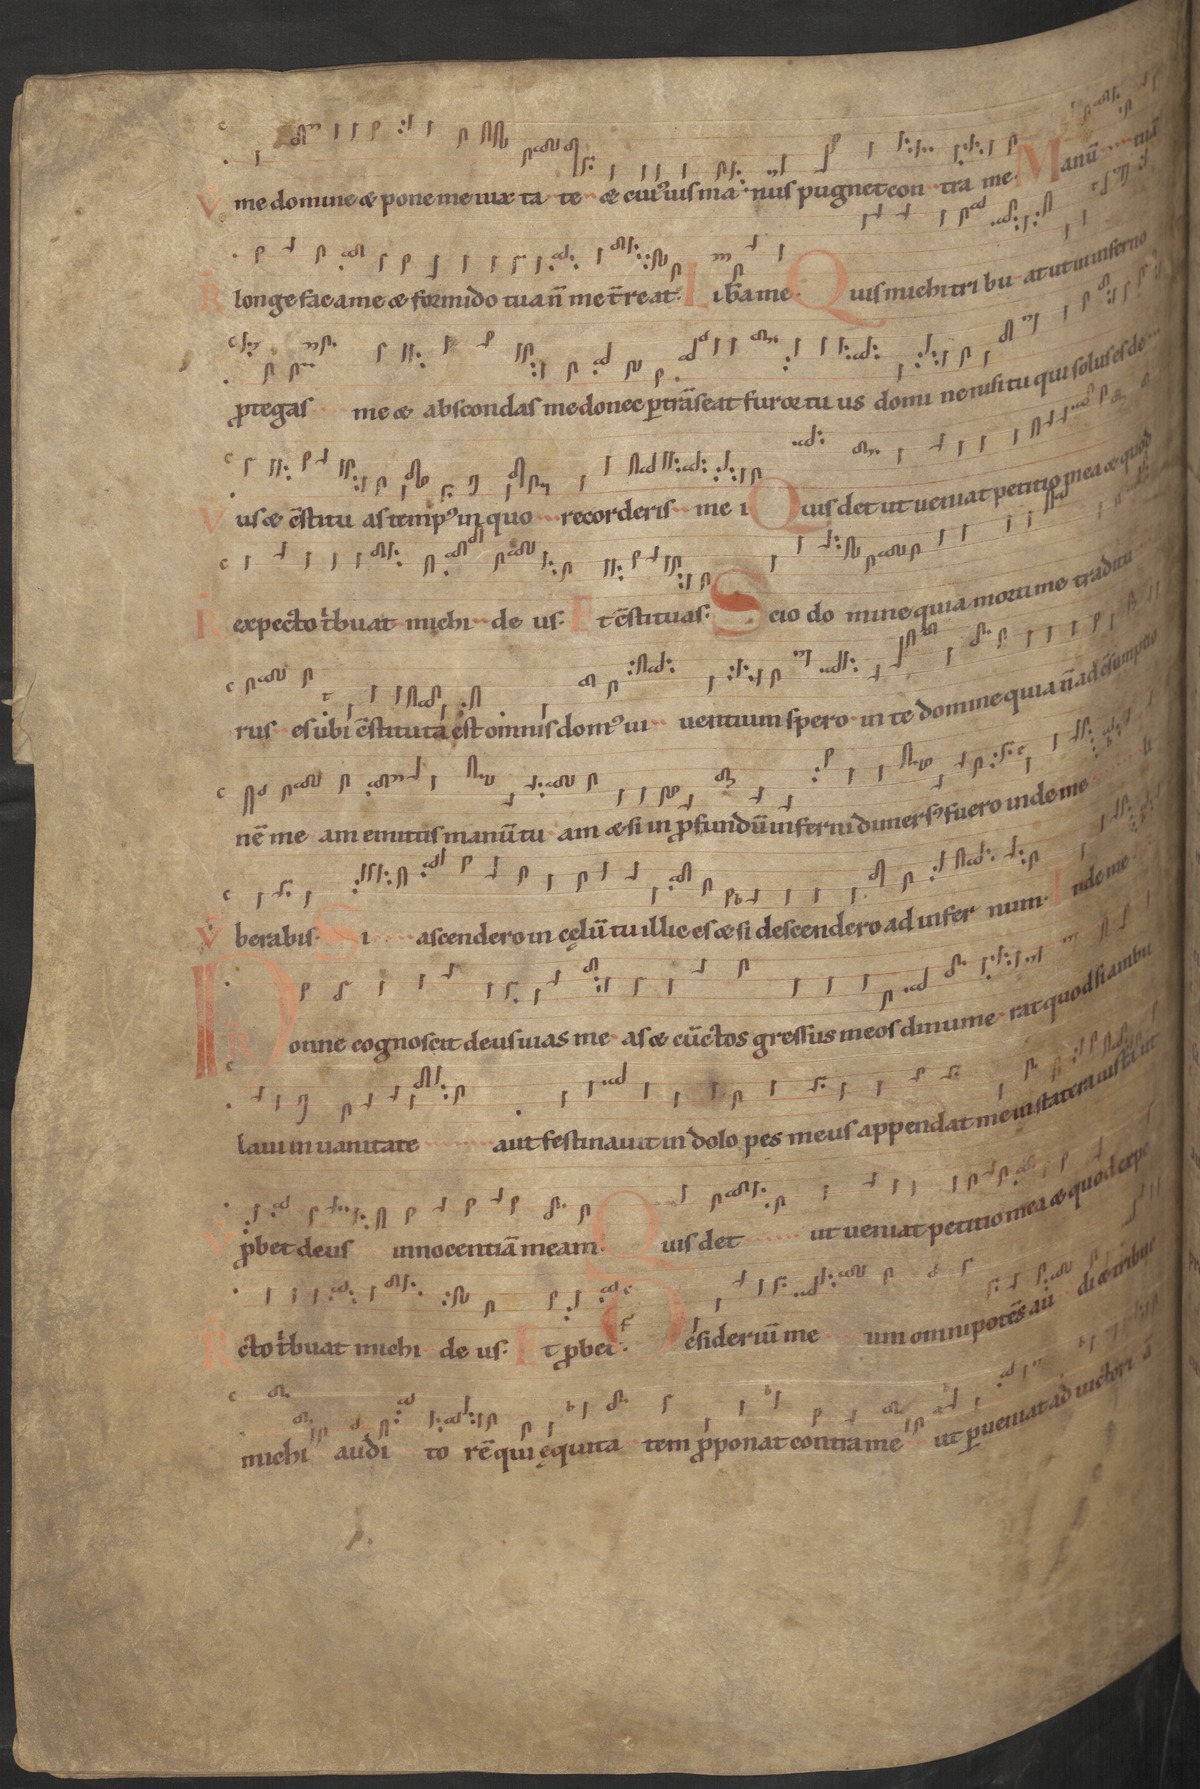 V me domine & pone me iuxta te & cui9uis ma nus pugnet contra me Manū tuā
R longe fac a me & formido tua ñ me t̄reat Lib̄a me Quis michi tribuat ut in inferno
ꝓtegas me & abscondas me donec ꝑtrāseat furor tuus domine nisi tu qui solus es de
V us & c̄stituas temp9 in quo recorderis mei Quis det ut ueniat petitio mea & quod
R expecto t̓buat michi deus Et c̄stituas Scio domine quia morti me traditu
rus es ubi c̄stituta est omnis dom9 uiuentium spero in te domine quia ñ ad c̄sumptio
nē meam emittis manū tuam & si in ꝓfundū inferni dimers9 fuero inde me li
V berabis Si ascendero in cęlū tu illic es & si descendero ad infernum Inde me
R Nonne cognoscit deus uias meas & cūctos gressus meos dinumerat quod si ambu
laui in uanitate aut festinauit in dolo pes meus appendat me in statera iusta ut
V ꝓbet deus innocentiā meam Quis det ut ueniat petitio mea & quod expe
R cto t̓buat michi deus Et ꝓbet Desideriū meum omnipotēs audi & tribue
michi auditorē qui ęquitatem ꝓponat contra me ut ꝑueniat ad uictoriā